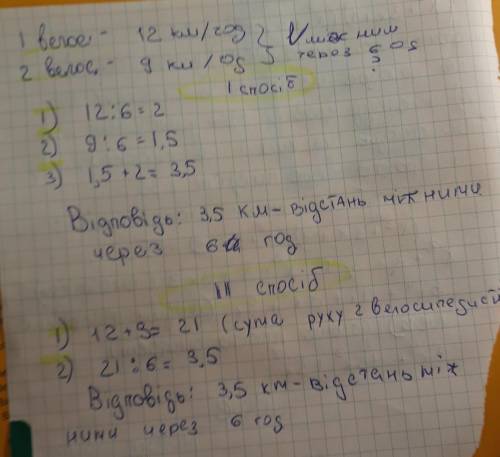 1 велос. - 12 км/год
2 велос. - 9 км/од } V між ним
через 6 од
?
I спосіб
1) 12:6=2
2) 9:6=1,5
3) 1,5+2=3,5
Відповідь: 3,5 км-відстань між ними
через 6 год
II спосіб
1) 12+9=21 (сума руху 2 велосипедистів
2) 21:6=3,5
Відповідь: 3,5 км-відстань між
ними через 6 год